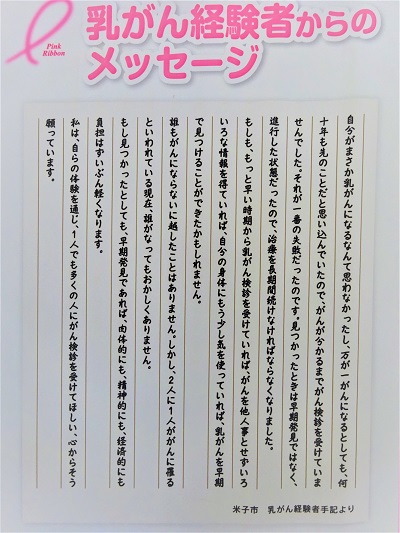 Pink
Ribbon
乳がん経験者からの
メッセージ
自分がまさか乳がんになるなんて思わなかったし、万が一がんになるとしても、何
十年も先のことだと思い込んでいたので、がんが分かるまでがん検診を受けていま
せんでした。それが一番の失敗だったのです。見つかったときは早期発見ではなく、
進行した状態だったので、治療を長期間続けなければならなくなりました。
もしも、もっと早い時期から乳がん検診を受けていれば、がんを他人事とせずいろ
いろな情報を得ていれば、自分の身体にもう少し気を使っていれば、乳がんを早期
で見つけることができたかもしれません。
誰もがんにならないに越したことはありません。しかし、2人に1人ががんに罹る
といわれている現在、誰がなってもおかしくありません。
もし見つかったとしても、早期発見であれば、肉体的にも、精神的にも、経済的にも
負担はずいぶん軽くなります。
私は、自らの体験を通じ、1人でも多くの人にがん検診を受けてほしい、心からそう
願っています。
米子市 乳がん経験者手記より